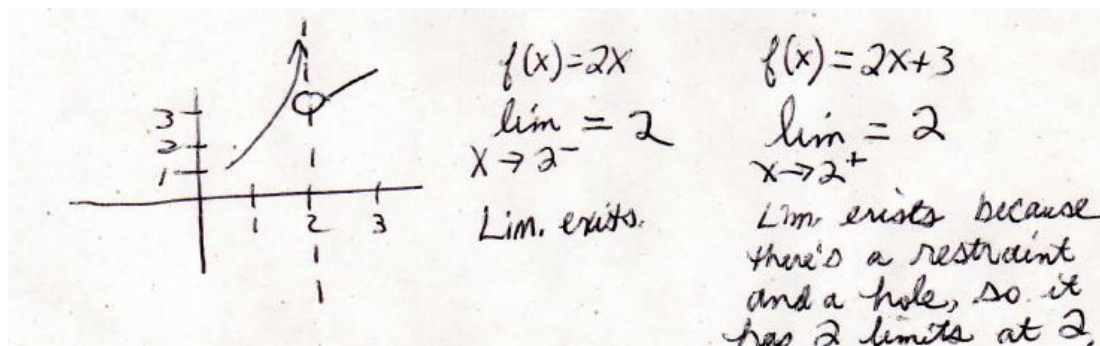 3
2
1
1 2 3
f(x)=2x
lim = 2
x→2⁻
Lim. exists.
f(x)=2x+3
lim = 2
x→2⁺
Lim. exists because
there's a restraint
and a hole, so it
has 2 limits at 2,